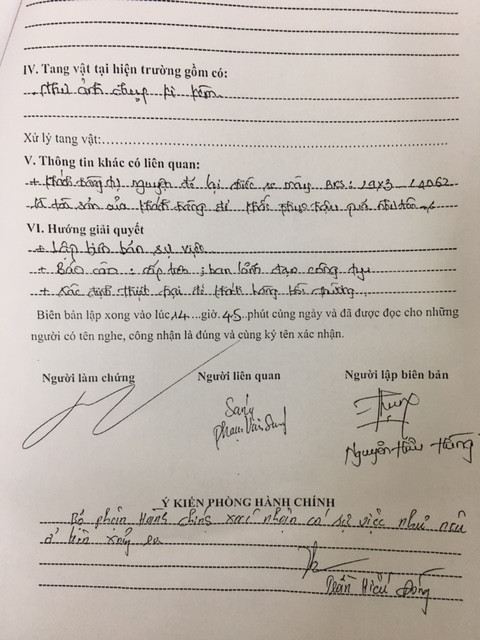 IV. Tang vật tại hiện trường gồm có:
như ảnh chụp kèm
Xử lý tang vật:
V. Thông tin khác có liên quan:
+ Khách hàng tự nguyện để lại chiếc xe máy BKS:
là tài sản của khách hàng để khắc phục hậu quả
VI. Hướng giải quyết
+ Lập biên bản sự việc
+ Báo cáo: cấp trên; ban lãnh đạo công ty
+ Xác định thiệt hại để khách hàng bồi thường
Biên bản lập xong vào lúc 14 giờ 45 phút cùng ngày và đã được đọc cho những
người có tên nghe, công nhận là đúng và cùng ký tên xác nhận.
Người làm chứng Người liên quan Người lập biên bản
Sang
Phạm Văn Sang
Nguyễn Hữu Hùng
Ý KIẾN PHÒNG HÀNH CHÍNH
Bộ phận Hành chính xác nhận có sự việc như nêu
ở trên xảy ra
Trần Hiếu Đông